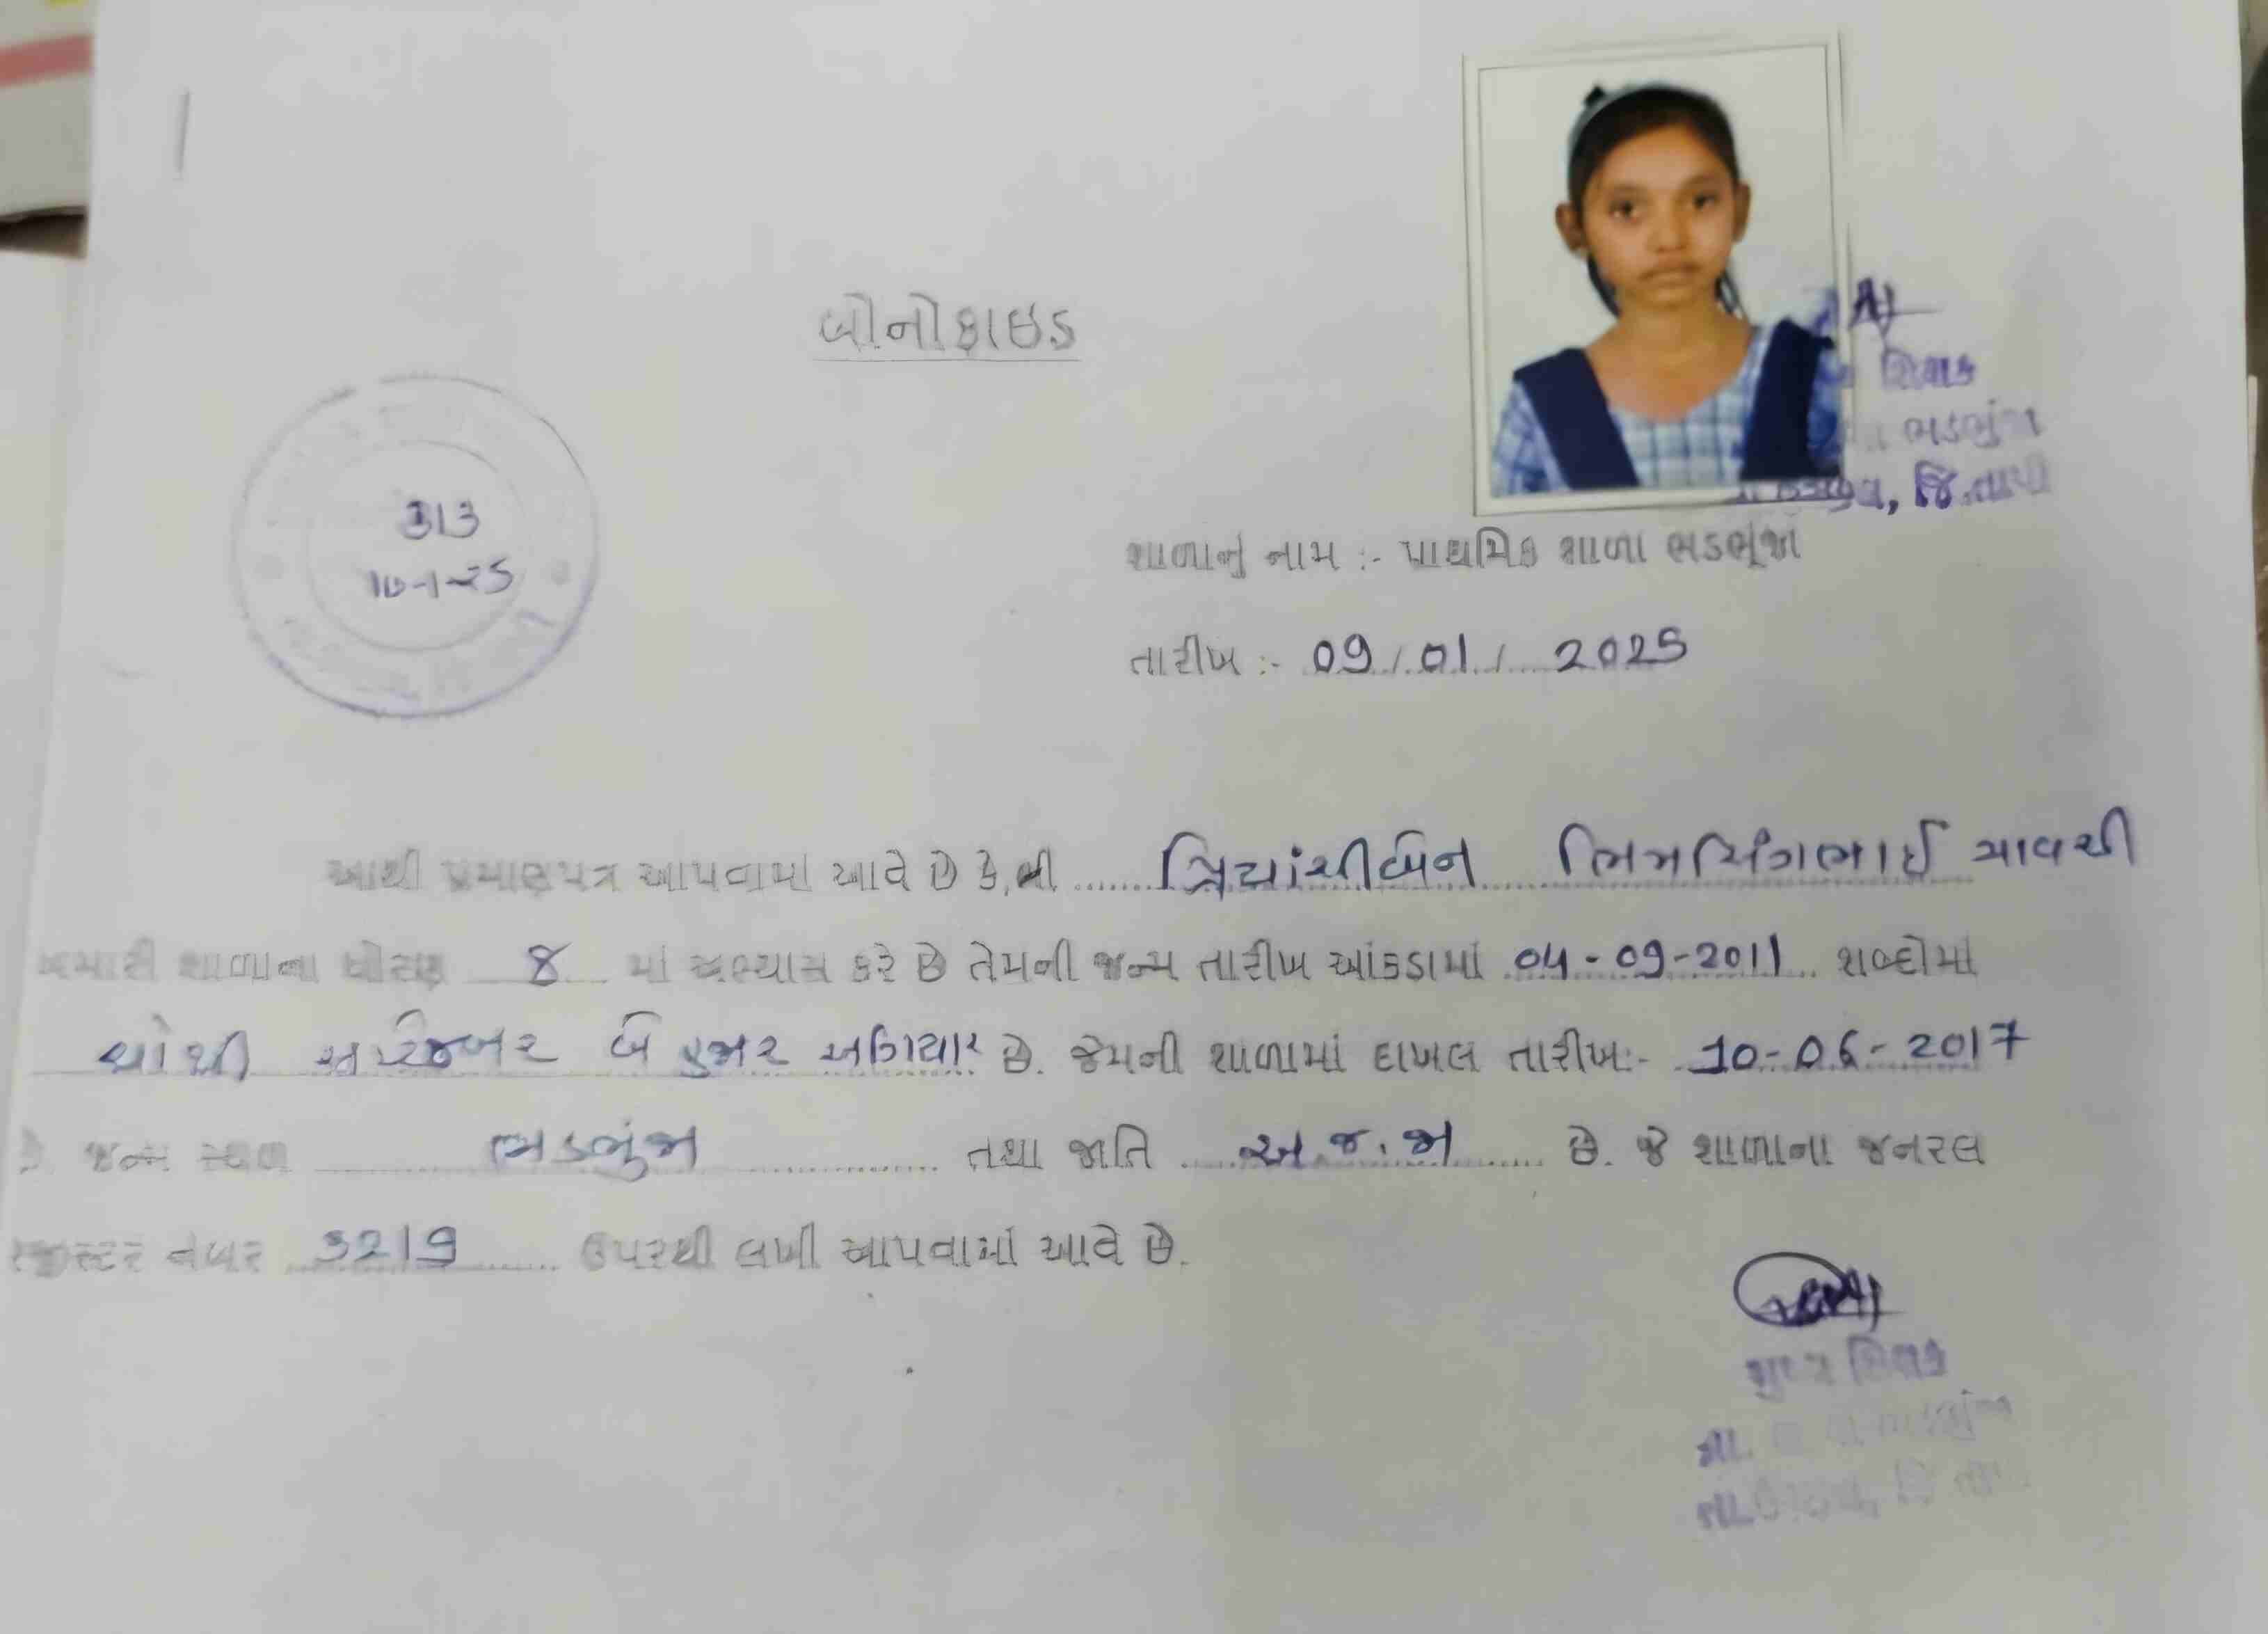 બોનોફાઇડ
313
10-1-25
શિક્ષક
ભડભુંજા
જિ.તાપી
શાળાનું નામ :- પ્રાથમિક શાળા ભડભૂંજા
તારીખ :- 09/01/ 2025
આથી પ્રમાણપત્ર આપવામાં આવે છે કે,શ્રી ભિમસિંગભાઈ
અમારી શાળાના ધોરણ 8 માં અભ્યાસ કરે છે તેમની જન્મ તારીખ આંકડામાં 04-09-2011 શબ્દોમાં
ચોથી સપ્ટેમ્બર બે હજાર અગિયાર છે. જેમની શાળામાં દાખલ તારીખ:- 10-06-2017
છે. જન્મ સ્થળ ભડભુંજા તથા જાતિ અ.જ.જા છે. જે શાળાના જનરલ
રજીસ્ટર નંબર 3219 ઉપરથી લખી આપવામાં આવે છે.
મુખ્ય શિક્ષક